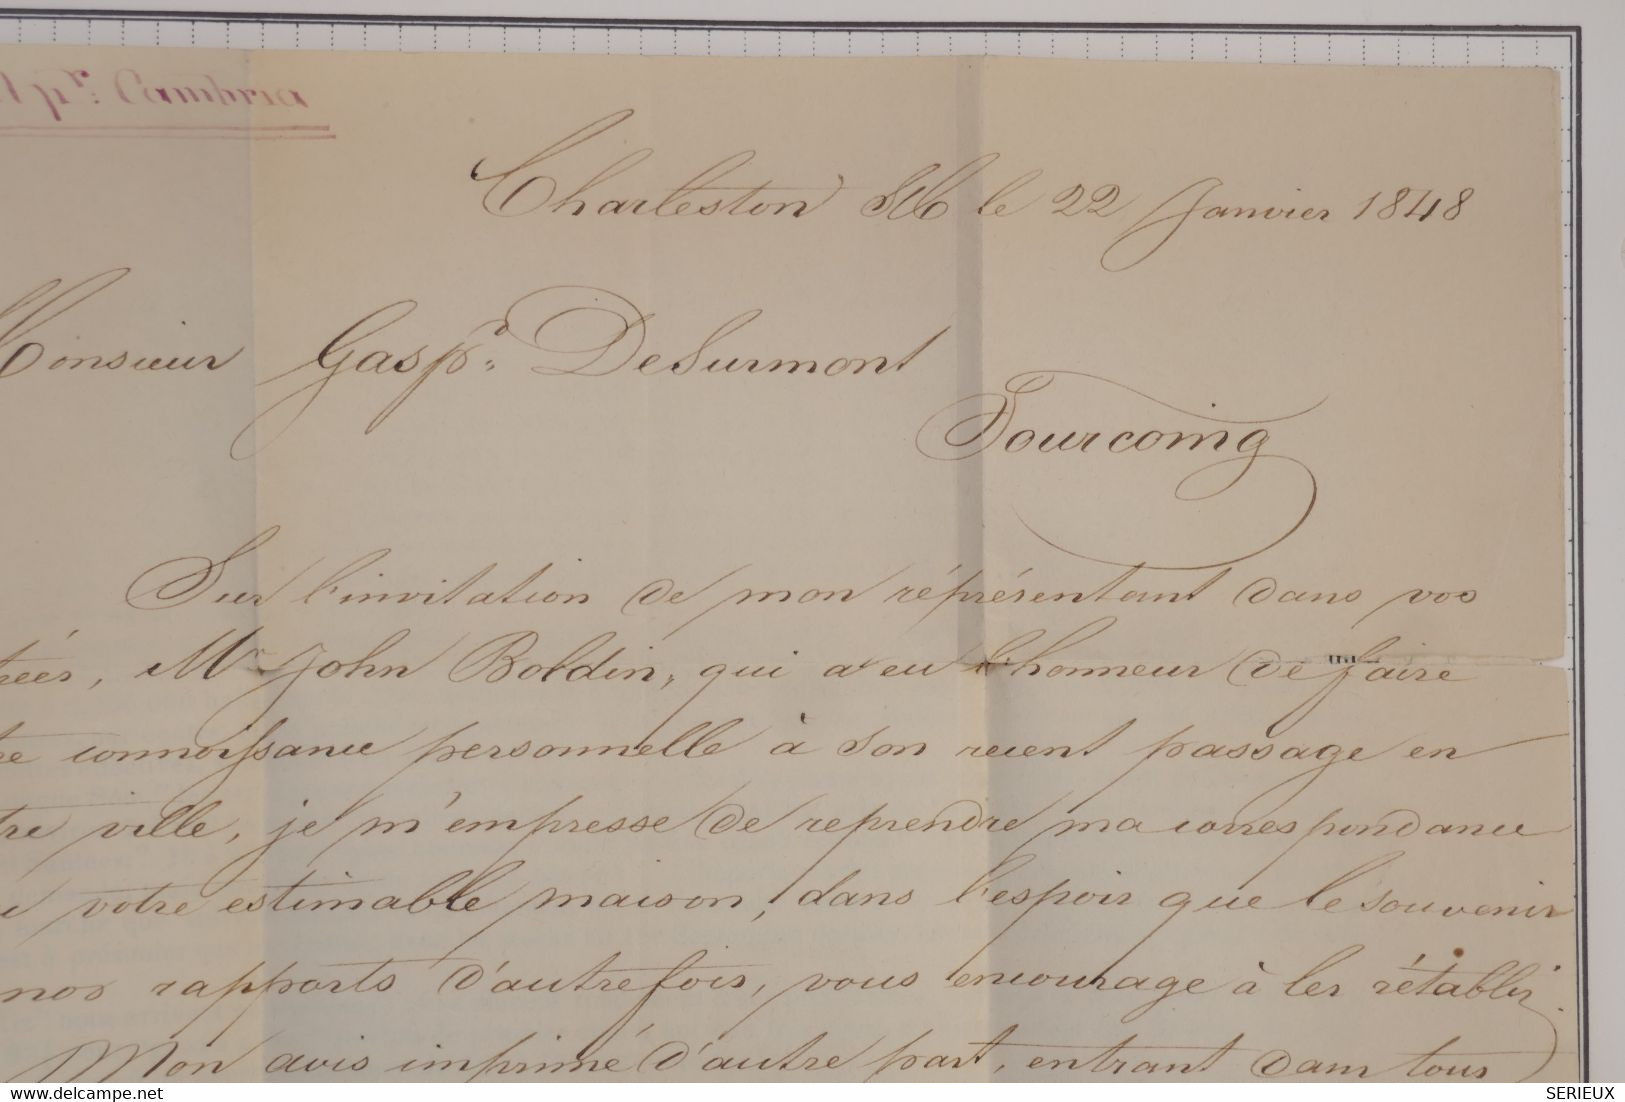 pr: Cambria
Charleston SC le 22 Janvier 1848
Monsieur Gaspd: DeSurmont
Tourcoing
Sur l'invitation de mon représentant dans vos
rées, Mr John Boldin, qui a eu l'honneur de faire
re connoissance personnelle à son recent passage en
tre ville, je m'empresse de reprendre ma correspondance
votre estimable maison, dans l'espoir que le souvenir
nos rapports d'autrefois, vous encourage à les rétablir.
Mon avis imprimé d'autre part, entrant dans tous
delcampe.net
SERIEUX